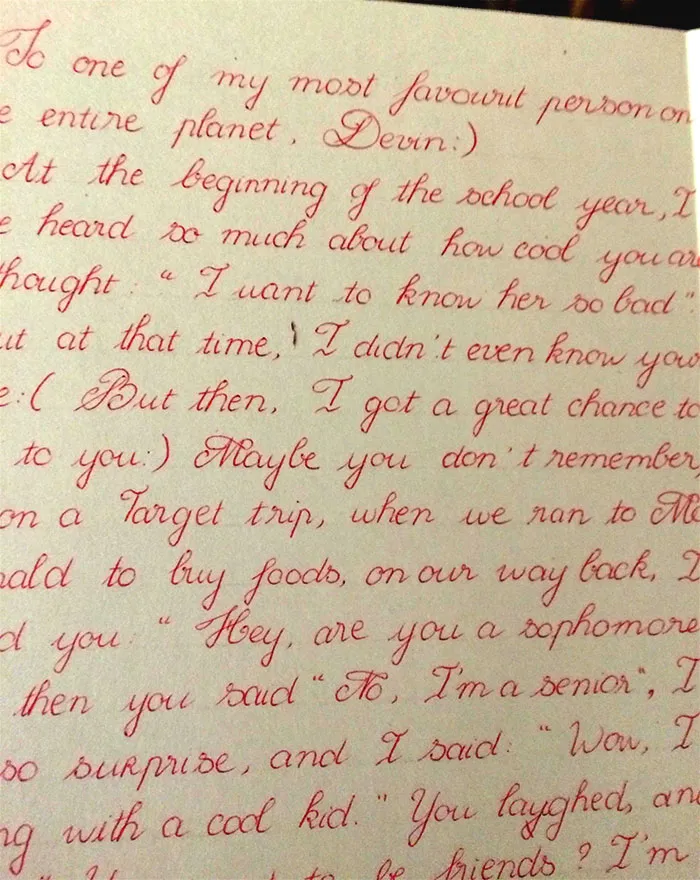 To one of my most favourit person on
e entire planet, Devin:)
At the beginning of the school year, I
e heard so much about how cool you are
hought: “ I want to know her so bad ”.
ut at that time, I didn't even know your
e:( But then, I got a great chance to
to you:) Maybe you don't remember,
on a Target trip, when we ran to Mc
nald to buy foods, on our way back, I
d you: “ Hey, are you a sophomore
then you said “ No, I'm a senior”, I
so surprise, and I said: “ Wow, I
ng with a cool kid.” You layghed, and
to be friends? I'm